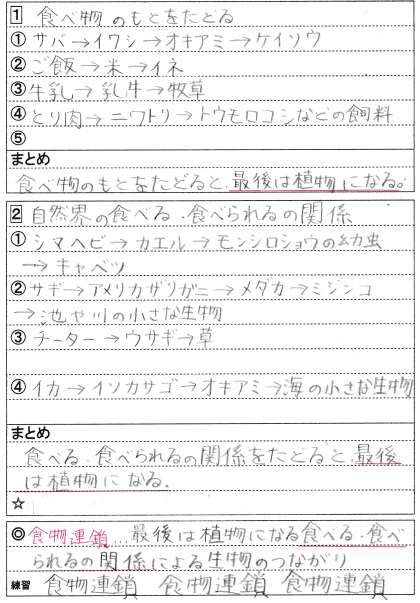 1 食べ物のもとをたどる
① サバ→イワシ→オキアミ→ケイソウ
② ご飯→米→イネ
③ 牛乳→乳牛→牧草
④ とり肉→ニワトリ→トウモロコシなどの飼料
⑤
まとめ
食べ物のもとをたどると、最後は植物になる。
2 自然界の食べる、食べられるの関係
① シマヘビ→カエル→モンシロショウの幼虫
→キャベツ
② サギ→アメリカザリガニ→メダカ→ミジンコ
→池や川の小さな生物
③ チーター→ウサギ→草
④ イカ→イソカサゴ→オキアミ→海の小さな生物
まとめ
食べる、食べられるの関係をたどると、最後
は植物になる。
☆
◎ 食物連鎖…最後は植物になる食べる、食べ
られるの関係による生物のつながり
練習 食物連鎖 食物連鎖 食物連鎖